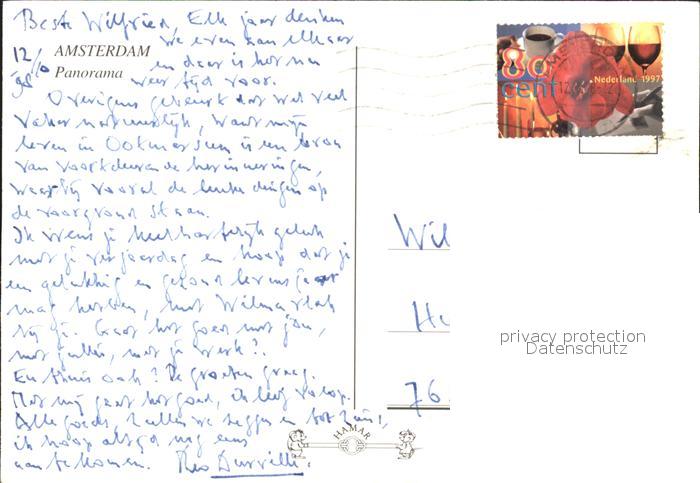 Beste Wilfried, Elk jaar denken
we even aan elkaar
12/10 98
AMSTERDAM
Panorama
en daar is het nu
weer tijd voor.
Overigens gebeurt dat wel veel
vaker natuurlijk, want mijn
leven in Ootmarsum is een bron
van voortdurende herinneringen,
waarbij vooral de leuke dingen op
de voorgrond staan.
Ik wens je heel hartelijk geluk
met je verjaardag en hoop dat je
een gelukkig en gezond levensjaar
mag hebben, met Wilma vlak
bij je. Gaat het goed met jou,
met jullie, met je werk?
En thuis ook? De groeten graag.
Met mij gaat het goed, ik leef volop.
Alle goeds, zullen we zeggen en tot ziens!,
ik hoop altijd nog eens
aan te komen. Theo
80
cent
Nederland 1997
Wil
Hu
76
privacy protection
Datenschutz
HAMAR